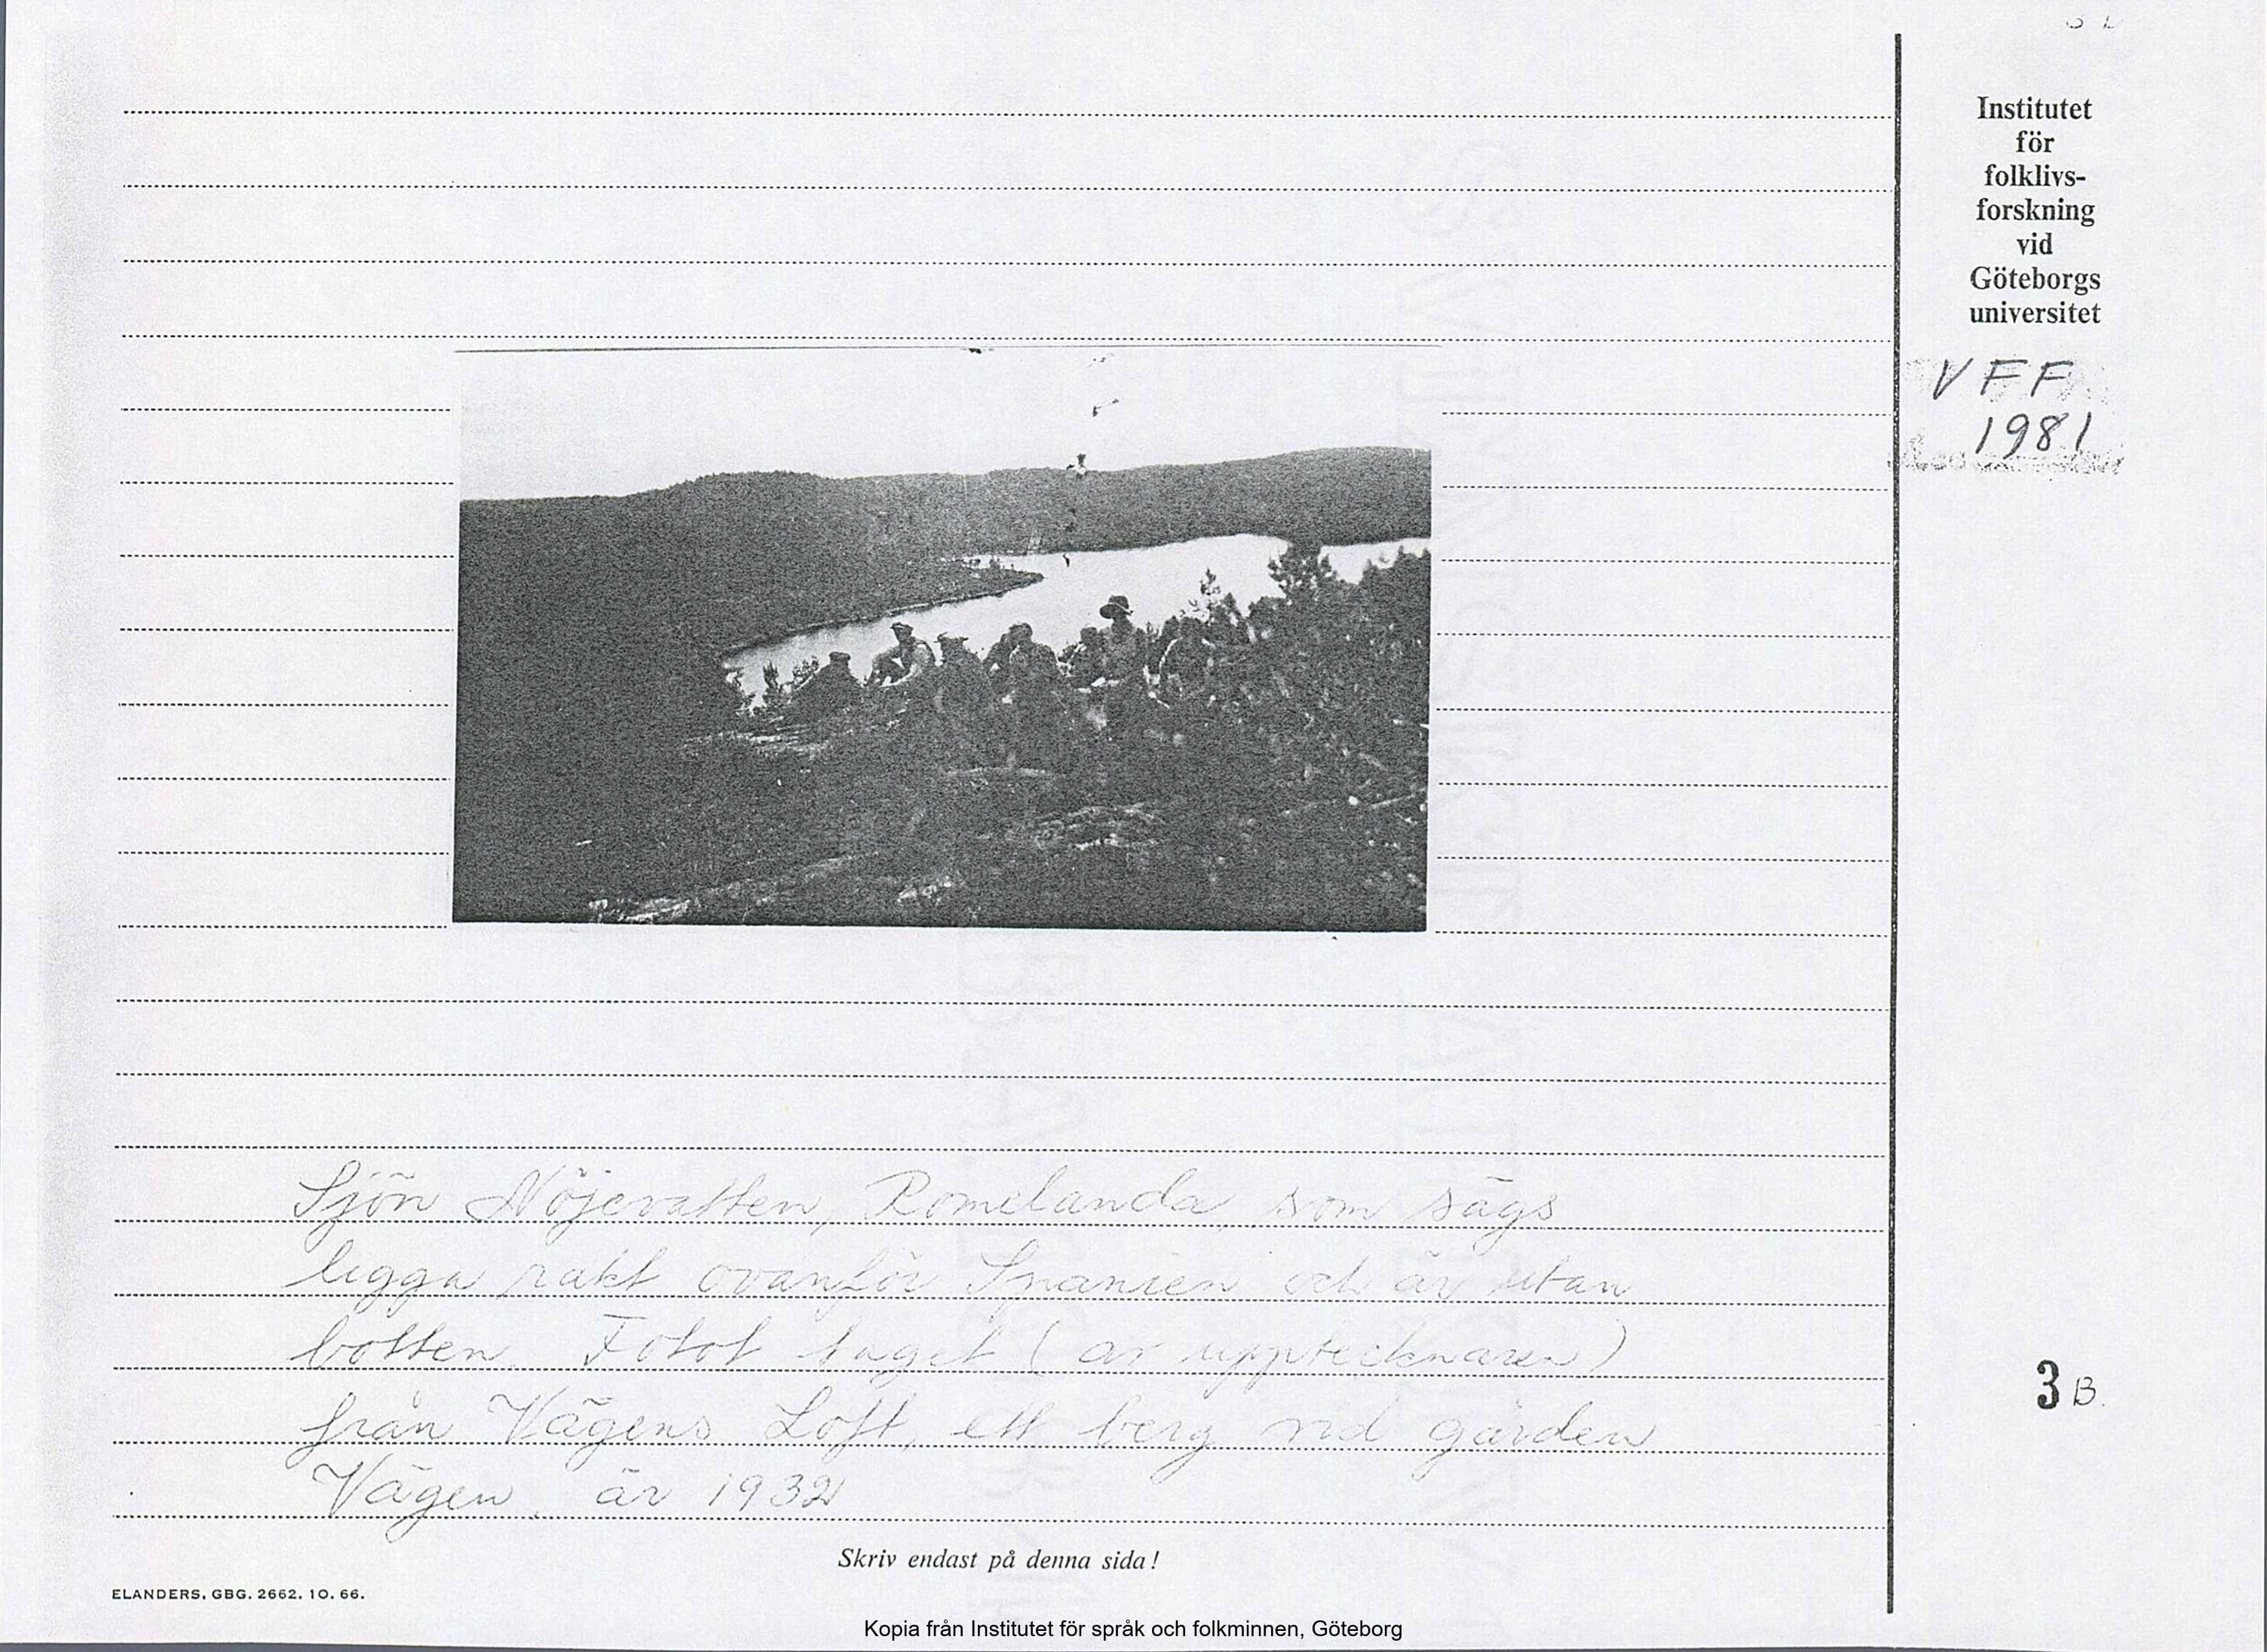 Institutet
för
folklivs-
forskning
vid
Göteborgs
universitet
VFF
1981
Sjön Nöjevatten, Romelanda, som sägs
ligga rakt ovanför Spanien och är utan
botten. Fotot taget (av upptecknaren)
från Vägens Loft, ett berg vid gården
Vägen, år 1932
3 B.
Skriv endast på denna sida!
ELANDERS, GBG. 2662. 10. 66.
Kopia från Institutet för språk och folkminnen, Göteborg